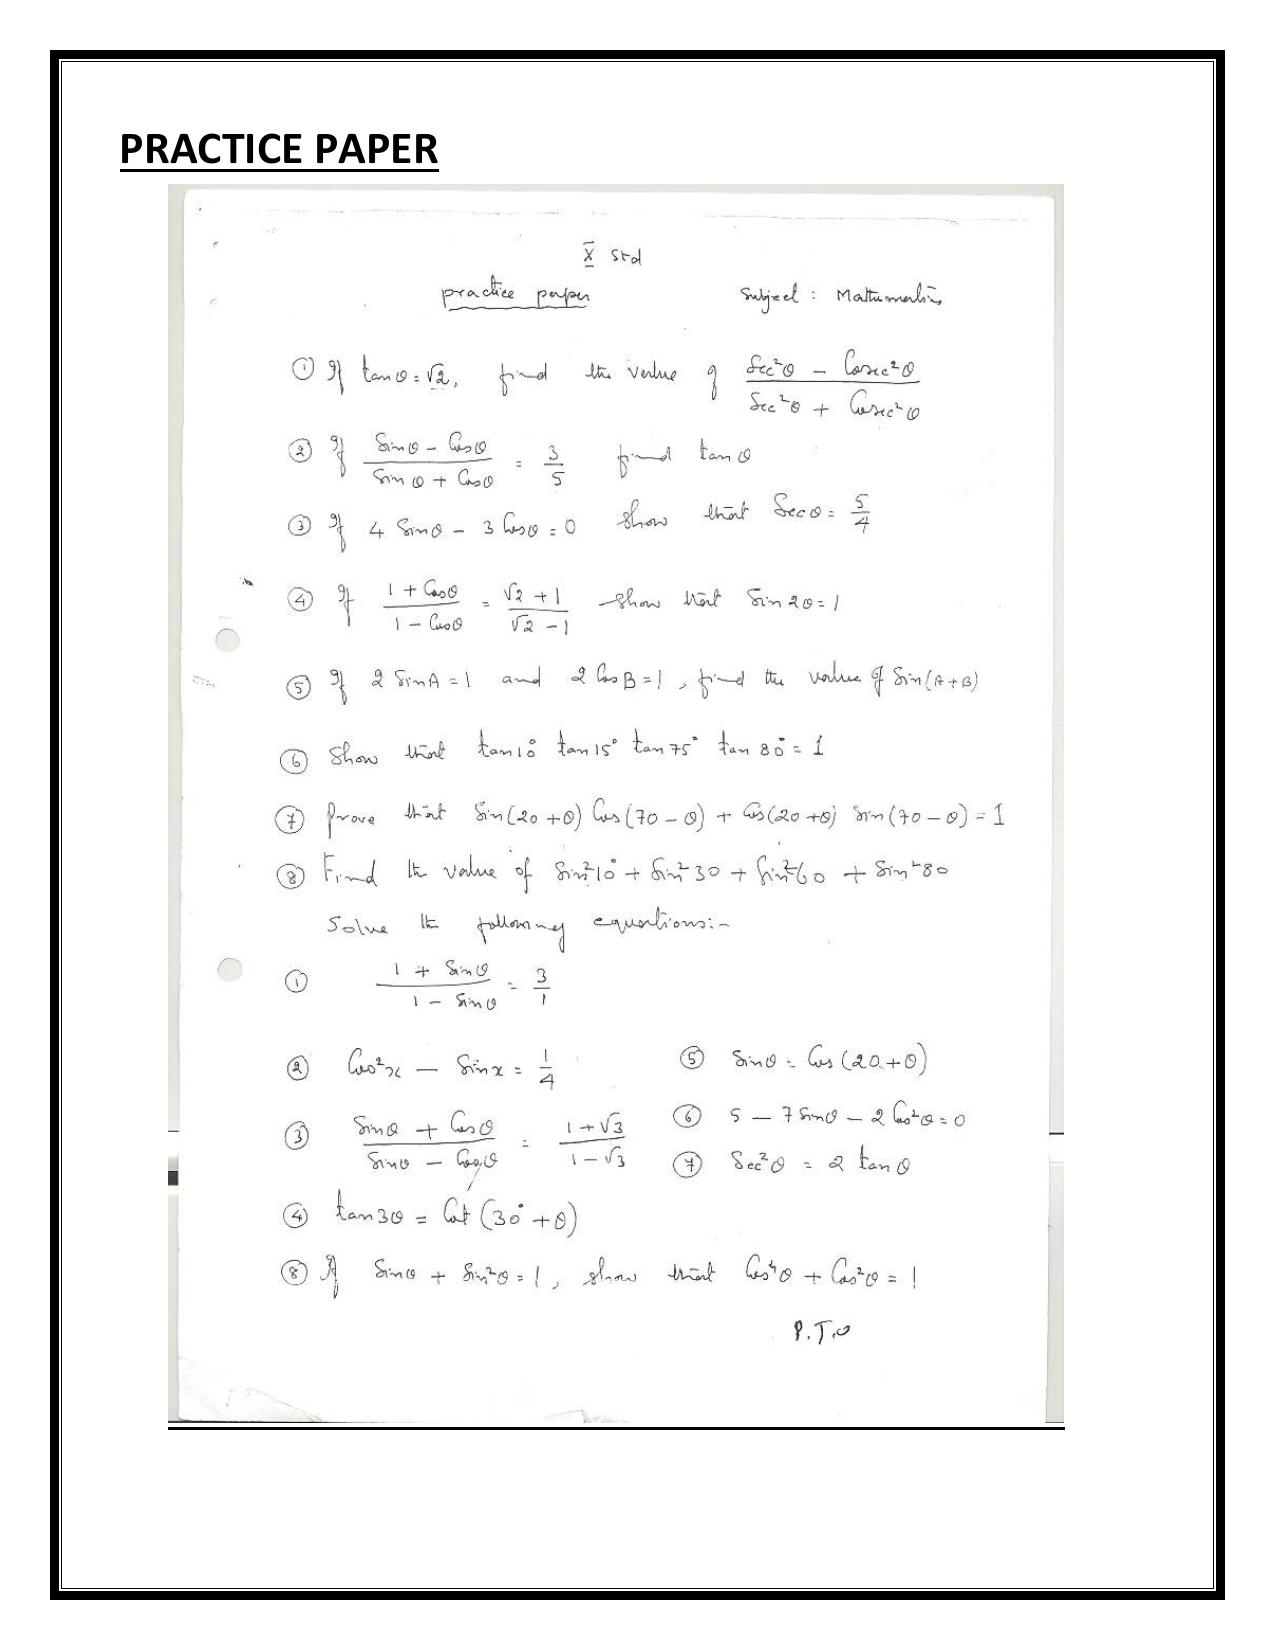 PRACTICE PAPER
X std
practice paper Subject : Mathematics
① If tanθ = √2, find the value of (Sec²θ - Cosec²θ)/(Sec²θ + Cosec²θ)
② If (Sinθ - Cosθ)/(Sinθ + Cosθ) = 3/5 find tanθ
③ If 4 Sinθ - 3 Cosθ = 0 show that Secθ = 5/4
④ If (1 + Cosθ)/(1 - Cosθ) = (√2 + 1)/(√2 - 1) show that Sin2θ = 1
⑤ If 2 SinA = 1 and 2 CosB = 1, find the value of Sin(A+B)
⑥ Show that tan10° tan15° tan75° tan80° = 1
⑦ Prove that Sin(20+θ) Cos(70-θ) + Cos(20+θ) Sin(70-θ) = 1
⑧ Find the value of Sin²10° + Sin²30 + Sin²60 + Sin²80
Solve the following equations:-
① (1 + Sinθ)/(1 - Sinθ) = 3/1
② Cos²x - Sinx = 1/4
⑤ Sinθ = Cos(20+θ)
③ (Sinθ + Cosθ)/(Sinθ - Cosθ) = (1+√3)/(1-√3)
⑥ 5 - 7Sinθ - 2Cos²θ = 0
⑦ Sec²θ = 2 tanθ
④ tan3θ = Cot(30°+θ)
⑧ If Sinθ + Sin²θ = 1, show that Cos⁴θ + Cos²θ = 1
P.T.O